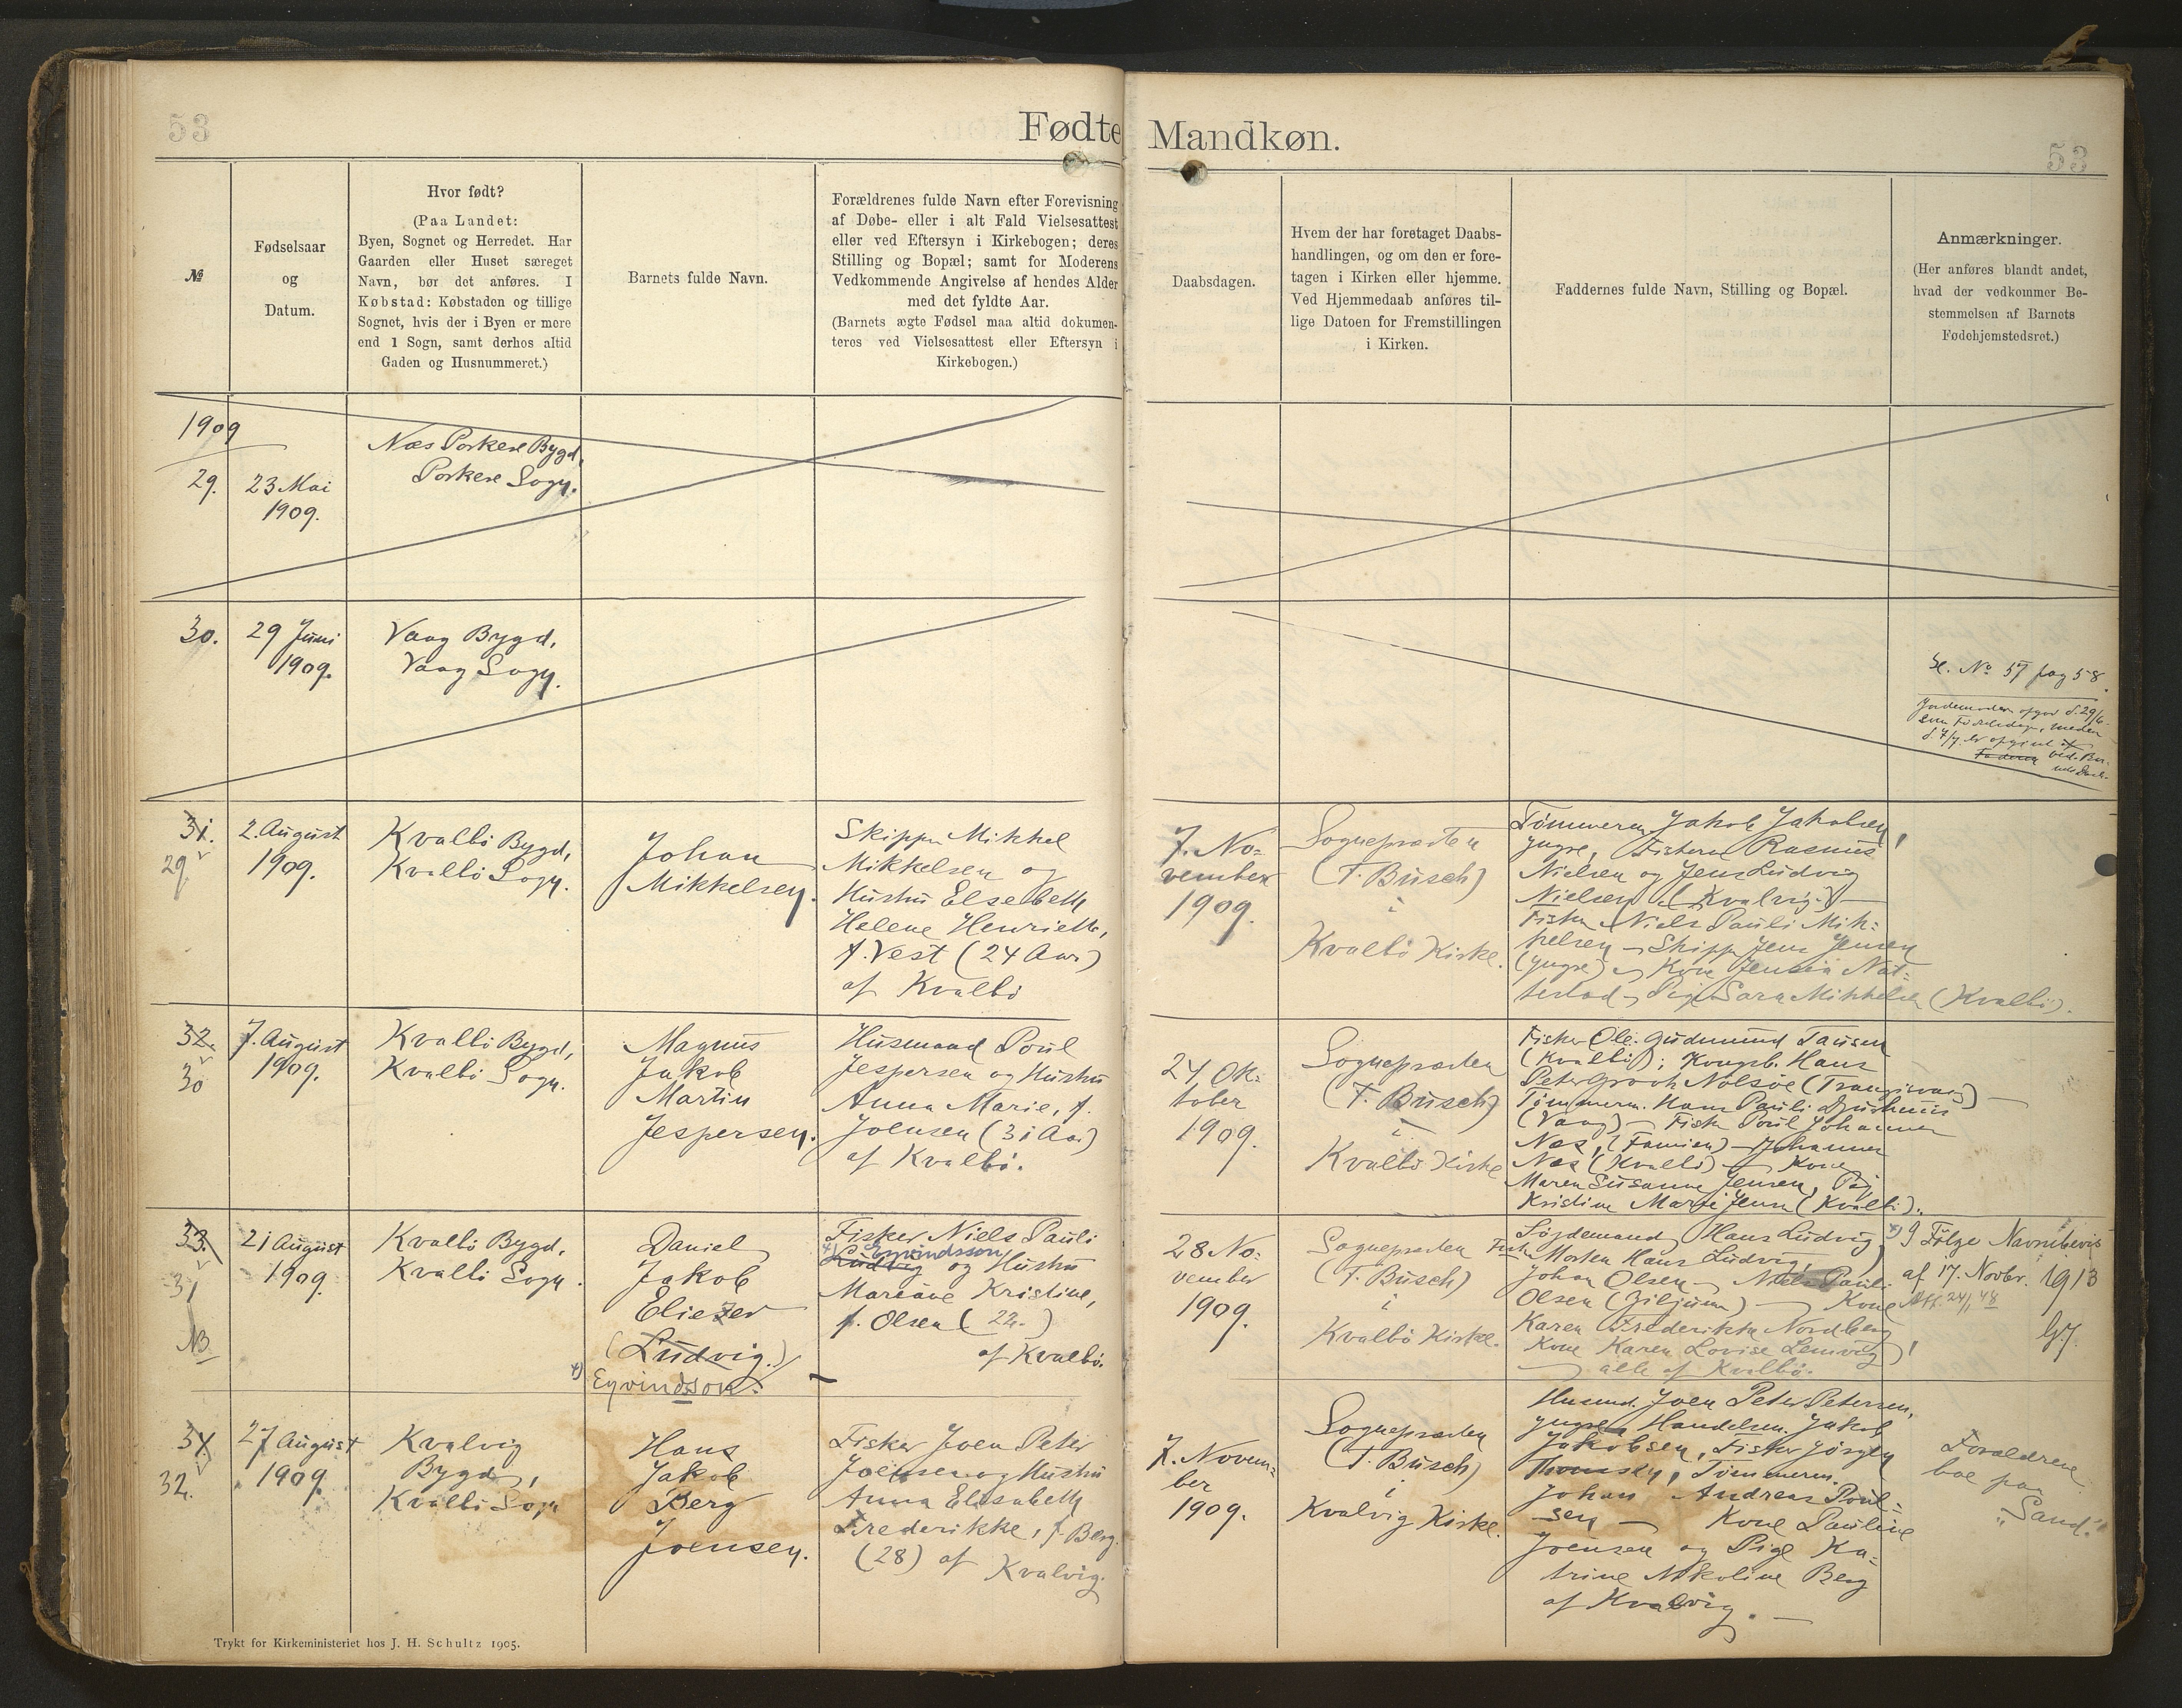 53
Fødte Mandkøn.
53
№
Fødselsaar
og
Datum.
Hvor født?
(Paa Landet:
Byen, Sognet og Herredet. Har
Gaarden eller Huset særeget
Navn, bør det anføres. I
Købstad: Købstaden og tillige
Sognet, hvis der i Byen er mere
end 1 Sogn, samt derhos altid
Gaden og Husnummeret.)
Barnets fulde Navn.
Forældrenes fulde Navn efter Forevisning
af Døbe- eller i alt Fald Vielsesattest
eller ved Eftersyn i Kirkebogen; deres
Stilling og Bopæl; samt for Moderens
Vedkommende Angivelse af hendes Alder
med det fyldte Aar.
(Barnets ægte Fødsel maa altid dokumen-
teres ved Vielsesattest eller Eftersyn i
Kirkebogen.)
Daabsdagen.
Hvem der har foretaget Daabs-
handlingen, og om den er fore-
tagen i Kirken eller hjemme.
Ved Hjemmedaab anføres til-
lige Datoen for Fremstillingen
i Kirken.
Faddernes fulde Navn, Stilling og Bopæl.
Anmærkninger.
(Her anføres blandt andet,
hvad der vedkommer Be-
stemmelsen af Barnets
Fødehjemstedsret.)
1909
29.
23 Mai
1909.
Næs Porkere Bygd,
Porkere Sogn.
30.
29 Juni
1909.
Vaag Bygd,
Vaag Sogn.
Se. No 57 pag 58.
Jordemoderen opgav d. 29/6
som Fødselsdag, meden
d. 7/7 er opgivet af
Faderen ved Bar-
31.
29
2. August
1909.
Kvalbö Bygd,
Kvalbö Sogn.
Johan
Mikkelsen.
Skipper Mikkel
Mikkelsen og
Hustru Elsebeth
Helene Henriette,
f. Vest (24 Aar)
af Kvalbö
7. No-
vember
1909.
Sognepræsten
(F. Busch)
i
Kvalbö Kirke.
Tömmerm Jakob Jakobsen,
yngre, Fiskerne Rasmus
Nielsen og Jens Ludvig
Nielsen (Kvalvig) —
Fisker Niels Pauli Mik-
kelsen — Skipper Jens Jensen
(yngre) og Kone Jensia Nat-
testad — Pige Sara Mikkelsen (Kvalbö).
32.
30
7. August
1909.
Kvalbö Bygd,
Kvalbö Sogn.
Magnus
Jakob
Martin
Jespersen.
Husmand Poul
Jespersen og Hustru
Anna Marie, f.
Joensen (31 Aar)
af Kvalbö.
24 Ok-
tober
1909.
Sognepræsten
(F. Busch)
i
Kvalbö Kirke
Fisker Ole Gudmund Tausen
(Kvalbö); Kongsb. Hans
Peter Groth Nolsöe (Trangisvaag) —
Tömmerm. Hans Pauli Djurhuus
(Vaag) — Fisker Poul Johannes
Næs, (Famien) — Johannes
Næs (Kvalbö) — Kone
Maren Susanne Jensen, Pig
Kristine Marie Jensen (Kvalbö).
33.
31
NB
21 August
1909.
Kvalbö Bygd,
Kvalbö Sogn.
Daniel
Jakob
Eliezer
(Ludvig.)
*) Eyvindsson.
Fisker Niels Pauli
*) Eyvindsson
Ludvig og Hustru
Mariane Kristine,
f. Olsen (22.)
af Kvalbö.
28 No-
vember
1909.
Sognepræsten
(F. Busch)
i
Kvalbö Kirke.
Sörgemand Hans Ludvig,
Fisk Morten Hans Ludvig,
Johan Olsen — Niels Pauli
Olsen — Kone
Karen Frederikke Nordberg,
Kone Karen Lovise Lemvig,
alle af Kvalbö.
*) I Fölge Navnebevis
af 17. Novbr. 1913
34.
32.
27 August
1909.
Kvalvig
Bygd,
Kvalbö Sogn
Hans
Jakob
Berg
Joensen.
Fisker Joen Peter
Joensen og Hustru
Anna Elisabeth
Frederikke, f. Berg.
(28) af Kvalvig.
7. Novem-
ber
1909.
Sognepræsten
(F. Busch)
i
Kvalvig Kirke.
Husmd. Joen Peter Petersen,
yngre, Handelsm. Jakob
Jakobsen, Fisker Jörgen
Thomsen, Tömmerm.
Johan Andreas Poul-
sen — Kone Pauline
Joensen og Pige Ka-
trine Nikoline Berg
af Kvalvig. —
Forældrene
boe paa
"Sand."
Trykt for Kirkeministeriet hos J. H. Schultz 1905.